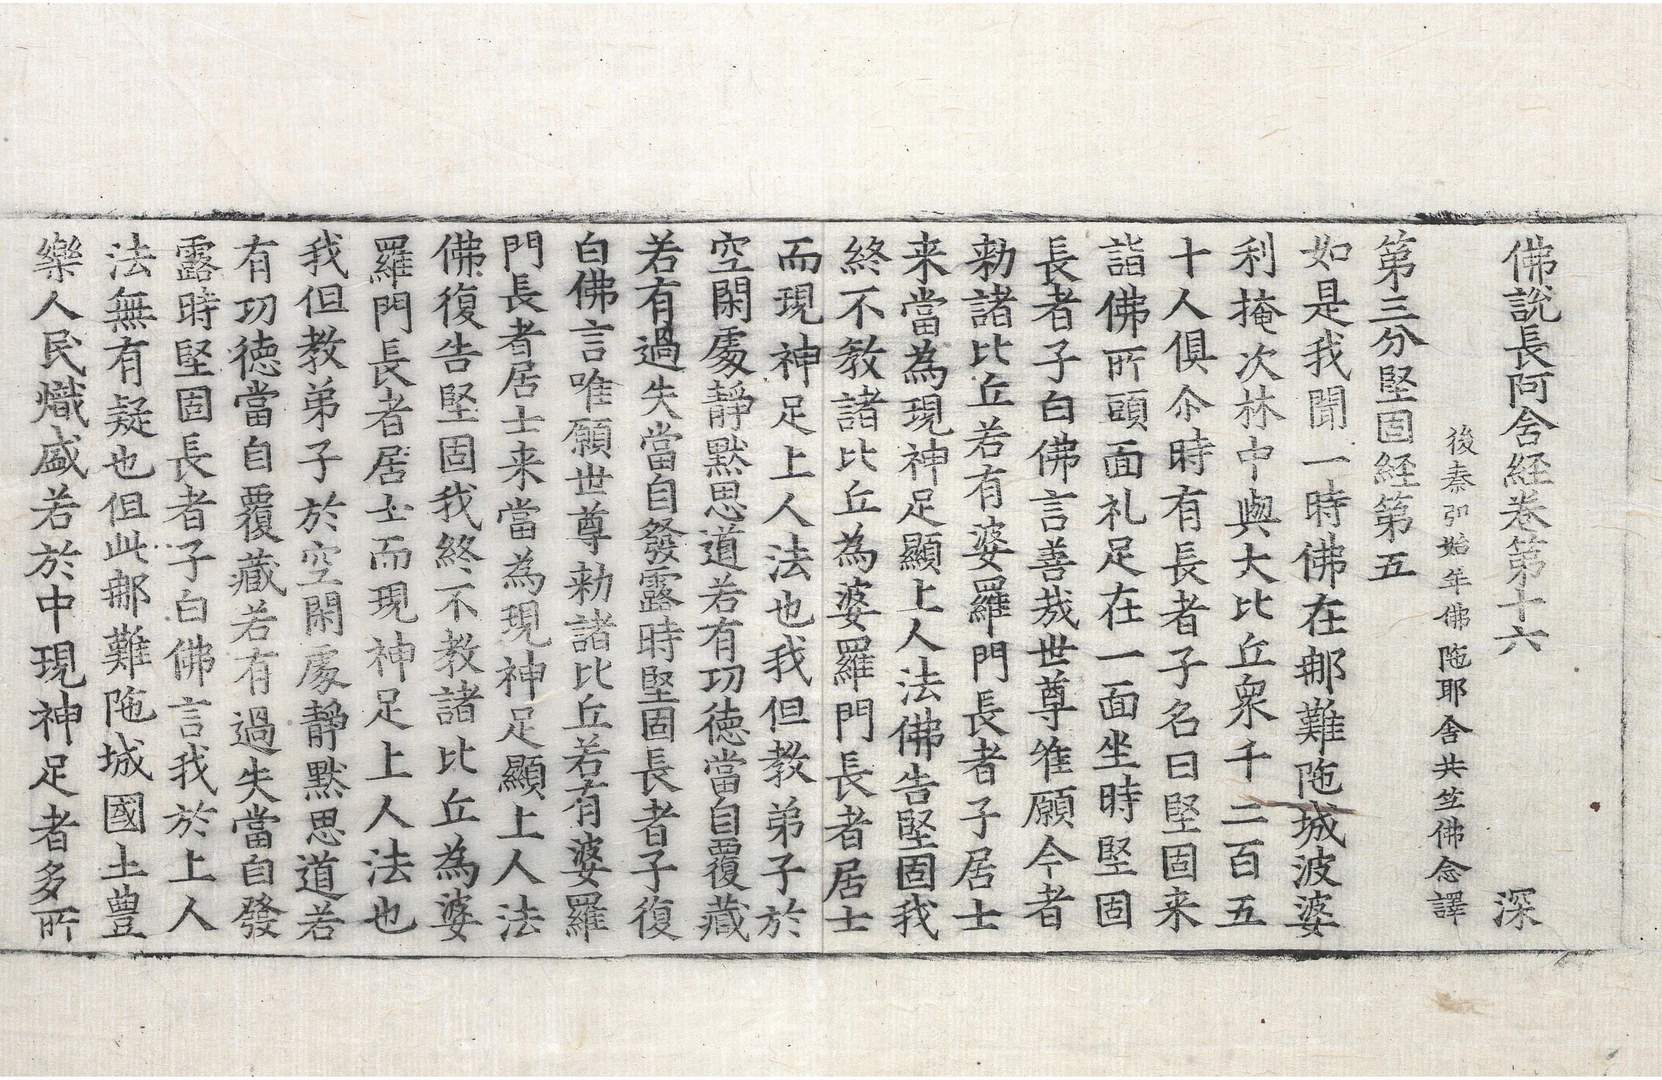 佛說長阿含経卷第十六 深
後秦弘始年佛陁耶舍共竺佛念譯
第三分堅固経第五
如是我聞一時佛在郍難陁城波婆
利掩次林中與大比丘衆千二百五
十人俱尒時有長者子名曰堅固来
詣佛所頭面礼足在一面坐時堅固
長者子白佛言善㢤世尊唯願今者
勑諸比丘若有婆羅門長者子居士
来當為現神足顯上人法佛告堅固我
終不教諸比丘為婆羅門長者居士
而現神足上人法也我但教弟子於
空閑處静默思道若有功徳當自覆藏
若有過失當自發露時堅固長者子復
白佛言唯願世尊勑諸比丘若有婆羅
門長者居士来當為現神足顯上人法
佛復告堅固我終不教諸比丘為婆
羅門長者居士而現神足上人法也
我但教弟子於空閑處静默思道若
有功徳當自覆藏若有過失當自發
露時堅固長者子白佛言我於上人
法無有疑也但此郍難陁城國土豊
樂人民熾盛若於中現神足者多所